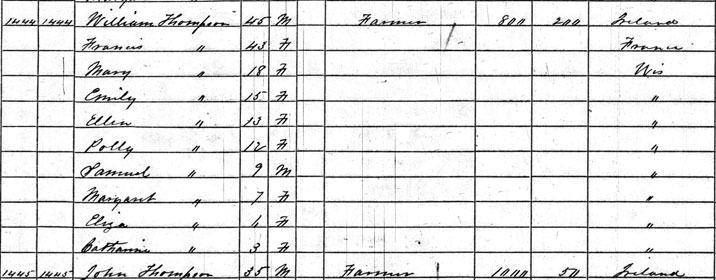 1444 1444 William Thompson 45 M Farmer 800 200 Ireland
Francis " 43 F France
Mary " 18 F Wis
Emily " 15 F "
Ellen " 13 F "
Polly " 12 F "
Samuel " 9 M "
Margaret " 7 F "
Eliza " 6 F "
Catharine " 3 F "
1445 1445 John Thompson 35 M Farmer 1000 50 Ireland